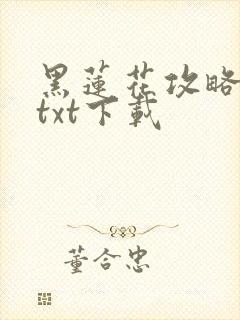 黑蓮花攻略
txt下載
董合忠